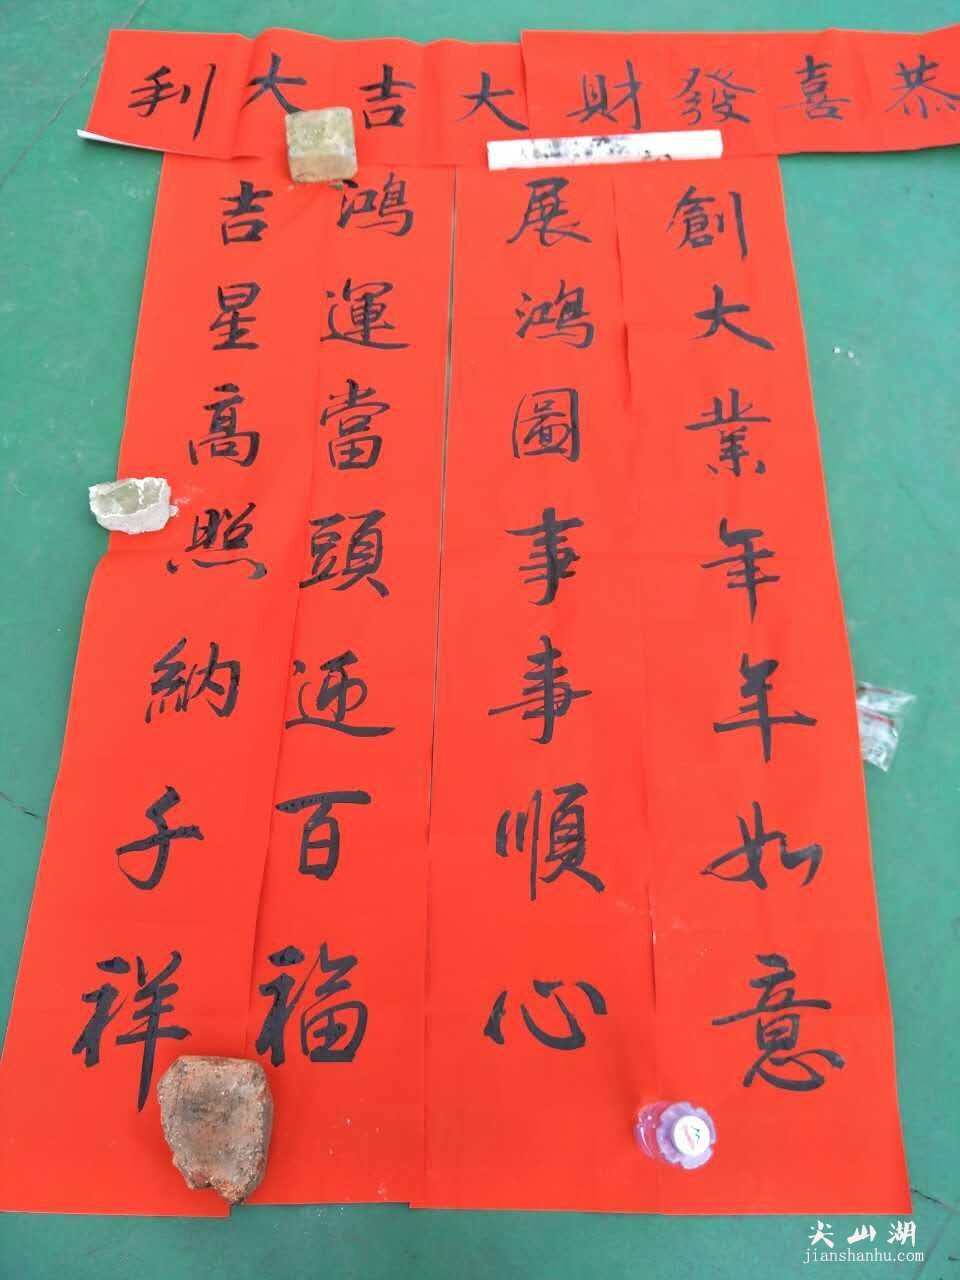 恭喜發財
大吉大利
創大業年年如意
展鴻圖事事順心
鴻運當頭迎百福
吉星高照納千祥
尖山湖
jianshanhu.com